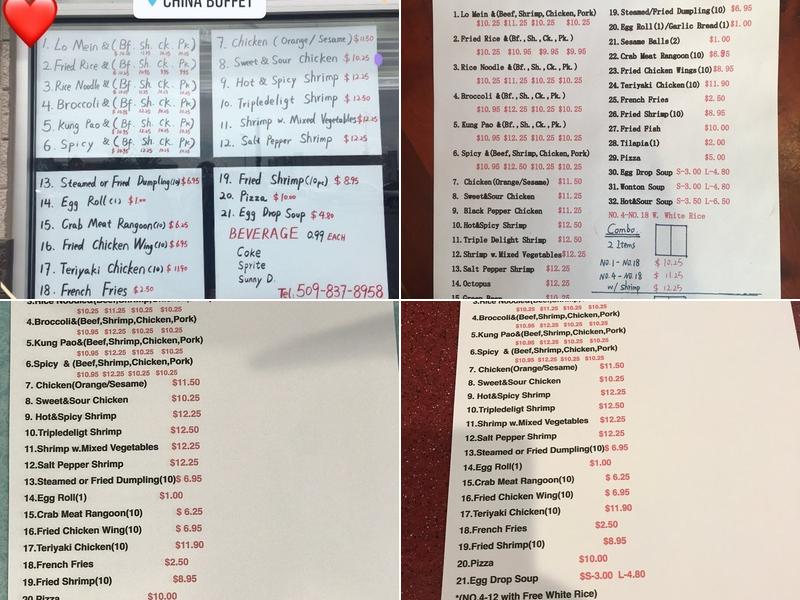 CHINA BUFFET
1. Lo Mein & (Bf. Sh. Ck. Pk)
2. Fried Rice & (Bf. Sh. ck. Pk)
3. Rice Noodle & (Bf. Sh. ck. Pk)
4. Broccoli & (Bf. Sh. ck. Pk)
5. Kung Pao & (Bf. Sh. ck. Pk)
6. Spicy & (Bf. Sh. ck. Pk)
7. Chicken (Orange / Sesame) $11.50
8. Sweet & Sour Chicken $10.25
9. Hot & Spicy Shrimp $12.25
10. Tripledeligt Shrimp $12.50
11. Shrimp w. Mixed Vegetables $12.25
12. Salt Pepper Shrimp $12.25
13. Steamed or Fried Dumpling(10) $6.95
14. Egg Roll(1) $1.00
15. Crab Meat Rangoon(10) $6.25
16. Fried Chicken Wing(10) $6.95
17. Teriyaki Chicken(10) $11.90
18. French Fries $2.50
19. Fried Shrimp(10pc) $8.95
20. Pizza $10.00
21. Egg Drop Soup $4.80
BEVERAGE 0.99 EACH
Coke
Sprite
Sunny D.
Tel. 509-837-8958
1. Lo Mein &(Beef,Shrimp,Chicken,Pork)
$10.25 $11.25 $10.25 $10.25
2. Fried Rice &(Bf.,Sh.,Ck.,Pk.)
$10.25 $10.95 $9.95 $9.95
3. Rice Noodle &(Bf.,Sh.,Ck.,Pk.)
$10.25 $11.25 $10.25 $10.25
4. Broccoli &(Bf.,Sh.,Ck.,Pk.)
$10.95 $12.25 $10.25 $10.25
5. Kung Pao &(Bf.,Sh.,Ck.,Pk.)
$10.95 $12.25 $10.25 $10.25
6. Spicy &(Beef,Shrimp,Chicken,Pork)
$10.95 $12.25 $10.25 $10.25
7. Chicken(Orange/Sesame) $11.50
8. Sweet&Sour Chicken $11.25
9. Black Pepper Chicken $11.25
10.Hot&Spicy Shrimp $12.50
11.Triple Delight Shrimp $12.50
12.Shrimp w.Mixed Vegetables $12.25
13.Salt Pepper Shrimp $12.25
14.Octopus $12.25
15.Green Bean
19. Steamed/Fried Dumpling(10) $6.95
20. Egg Roll(1)/Garlic Bread(1) $1.00
21. Sesame Balls(2) $1.00
22. Crab Meat Rangoon(10) $6.95
23. Fried Chicken Wings(10) $8.95
24. Teriyaki Chicken(10) $11.90
25. French Fries $2.50
26. Fried Shrimp(10) $8.95
27. Fried Fish $10.00
28. Tilapia(1) $2.00
29. Pizza $5.00
30. Egg Drop Soup S-3.00 L-4.80
31. Wonton Soup S-3.00 L-4.80
32. Hot&Sour Soup S-3.50 L-6.50
NO.4-NO.18 W. White Rice
Combo.
2 Items
NO.1-NO.18 $10.25
NO.4-NO.18 $11.25
w/ Shrimp $12.25
3.Rice Noodled&(Beef,Shrimp,Chicken,Pork)
$10.25 $11.25 $10.25 $10.25
4.Broccoli&(Beef,Shrimp,Chicken,Pork)
$10.95 $12.25 $10.25 $10.25
5.Kung Pao&(Beef,Shrimp,Chicken,Pork)
$10.95 $12.25 $10.25 $10.25
6.Spicy & (Beef,Shrimp,Chicken,Pork)
$10.95 $12.25 $10.25 $10.25
7. Chicken(Orange/Sesame) $11.50
8. Sweet&Sour Chicken $10.25
9. Hot&Spicy Shrimp $12.25
10.Tripledeligt Shrimp $12.50
11.Shrimp w.Mixed Vegetables $12.25
12.Salt Pepper Shrimp $12.25
13.Steamed or Fried Dumpling(10)$ 6.95
14.Egg Roll(1) $1.00
15.Crab Meat Rangoon(10) $ 6.25
16.Fried Chicken Wing(10) $ 6.95
17.Teriyaki Chicken(10) $11.90
18.French Fries $2.50
19.Fried Shrimp(10) $8.95
20.Pizza $10.00
$10.25 $11.25 $10.25 $10.25
4.Broccoli&(Beef,Shrimp,Chicken,Pork)
$10.95 $12.25 $10.25 $10.25
5.Kung Pao&(Beef,Shrimp,Chicken,Pork)
$10.95 $12.25 $10.25 $10.25
6.Spicy & (Beef,Shrimp,Chicken,Pork)
$10.95 $12.25 $10.25 $10.25
7. Chicken(Orange/Sesame) $11.50
8. Sweet&Sour Chicken $10.25
9. Hot&Spicy Shrimp $12.25
10.Tripledeligt Shrimp $12.50
11.Shrimp w.Mixed Vegetables $12.25
12.Salt Pepper Shrimp $12.25
13.Steamed or Fried Dumpling(10)$ 6.95
14.Egg Roll(1) $1.00
15.Crab Meat Rangoon(10) $ 6.25
16.Fried Chicken Wing(10) $ 6.95
17.Teriyaki Chicken(10) $11.90
18.French Fries $2.50
19.Fried Shrimp(10) $8.95
20.Pizza $10.00
21.Egg Drop Soup $S-3.00 L-4.80
*(NO.4-12 with Free White Rice)